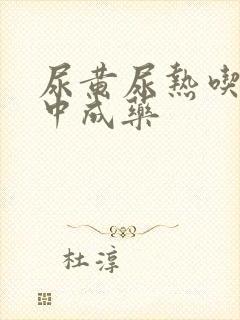 尿黄尿熱喫
中成藥
杜淳